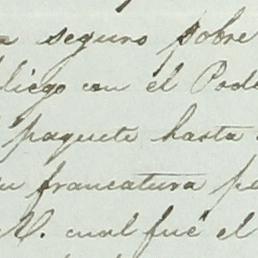 seguro sobre
pliego con el Pode
paquete hasta
su francatura pa
V. cual fué el